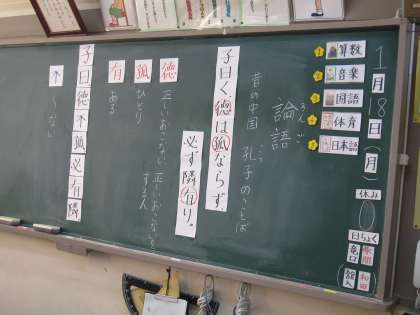 1月18日(月)
休み
日ちょく
1 算数
2 音楽
3 国語
4 体育
5 日本語
論語
ろんご
昔の中国 孔子のことば
こうし
子曰く、徳は孤ならず、
必ず隣有り。
徳 正しいおこない、正しいおこないをする人
孤 ひとり
有 ある
子曰徳不孤必有隣
不 〜ない